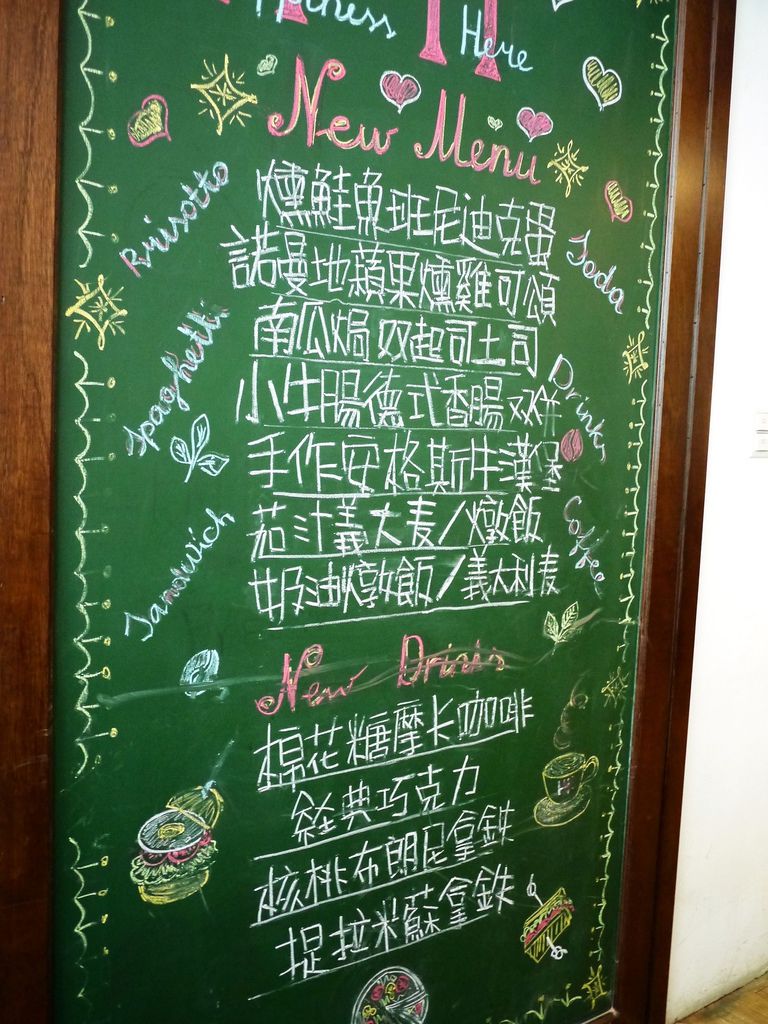 Here
New Menu
燻鮭魚班尼迪克蛋
Rrisotto
諾曼地蘋果燻雞可頌
Soda
南瓜焗双起司土司
Spaghetti
小牛腸德式香腸双併
Drinks
手作安格斯牛漢堡
茄汁義大麦/燉飯
Coffee
Sandwich
奶油燉飯/義大利麦
New Drinks
棉花糖摩卡咖啡
經典巧克力
核桃布朗尼拿鉄
提拉米蘇拿鉄